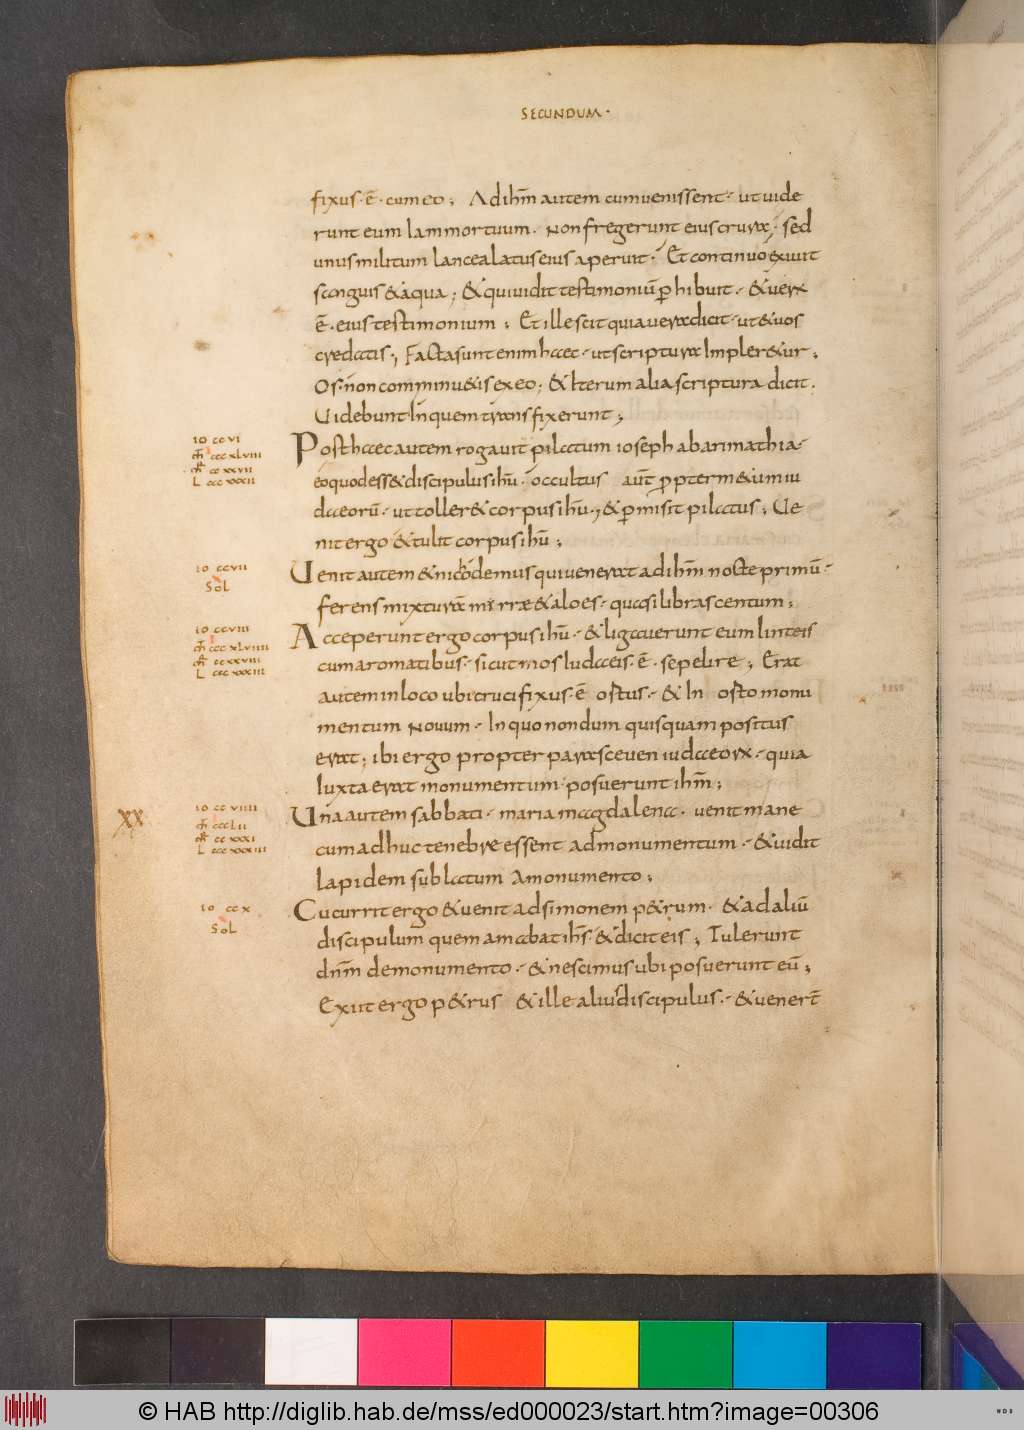 SECUNDUM·
fixus·ē·cum eo; Ad ihm̄ autem cum uenissent· ut uide
runt eum Iam mortuum· Non fregerunt eius crura; sed
unus militum lancea latus eius aperuit· Et continuo exiuit
sanguis & aqua; & qui uidit testimoniū ꝑhibuit· & uerū
ē·eius testimonium; Et ille scit quia uera dicit· ut & uos
credatis; Facta sunt enim haec· ut scriptura Impler&ur;
Os·n̄on comminu&is ex eo; & Iterum alia scriptura dicit·
Uidebunt In quem transfixerunt;
Post haec autem rogauit pilatum ioseph ab arimathia·
eo quod ess& discipulus ihū· occultus aut̄ ꝓpter m&um iu
daeorū· ut toller& corpus ihū·; & ꝑmisit pilatus; Ue
nit ergo & tulit corpus ihū;
Uenit autem & nicodemus qui uenerat ad ihm̄ nocte primū·
ferens mixturam mirræ & aloes· quasi libras centum;
Acceperunt ergo corpus ihū· & ligauerunt eum linteis
cum aromatibus· sicut mos Iudaeis·ē·sepelire; Erat
autem in loco ubi crucifixus·ē ostus· & In osto monu
mentum Nouum· In quo nondum quisquam positus
erat; ibi ergo propter parasceuen iudaeorū· quia
Iuxta erat monumentum· posuerunt ihm̄;
Una autem sabbati· maria magdalena· uenit mane
cum adhuc tenebre essent ad monumentum· & uidit
lapidem sublatum A monumento;
Cucurrit ergo & uenit ad simonem p&rum· & ad aliū
discipulum quem amabat ih̄s· & dicit eis; Tulerunt
dnm̄ de monumento· & nescimus ubi posuerunt eū;
Exiit ergo p&rus & ille alius discipulus· & uenert̄
IO CCVI
CCCXLVIII
CCXXVII
L CCCXXXII
IO CCVII
SOL
IO CCVIII
CCCXLVIIII
CCXXVIII
L CCCXXXIII
XX
IO CCVIIII
CCCLII
CCXXXI
L CCCXXXVI
IO CCX
SOL
© HAB http://diglib.hab.de/mss/ed000023/start.htm?image=00306